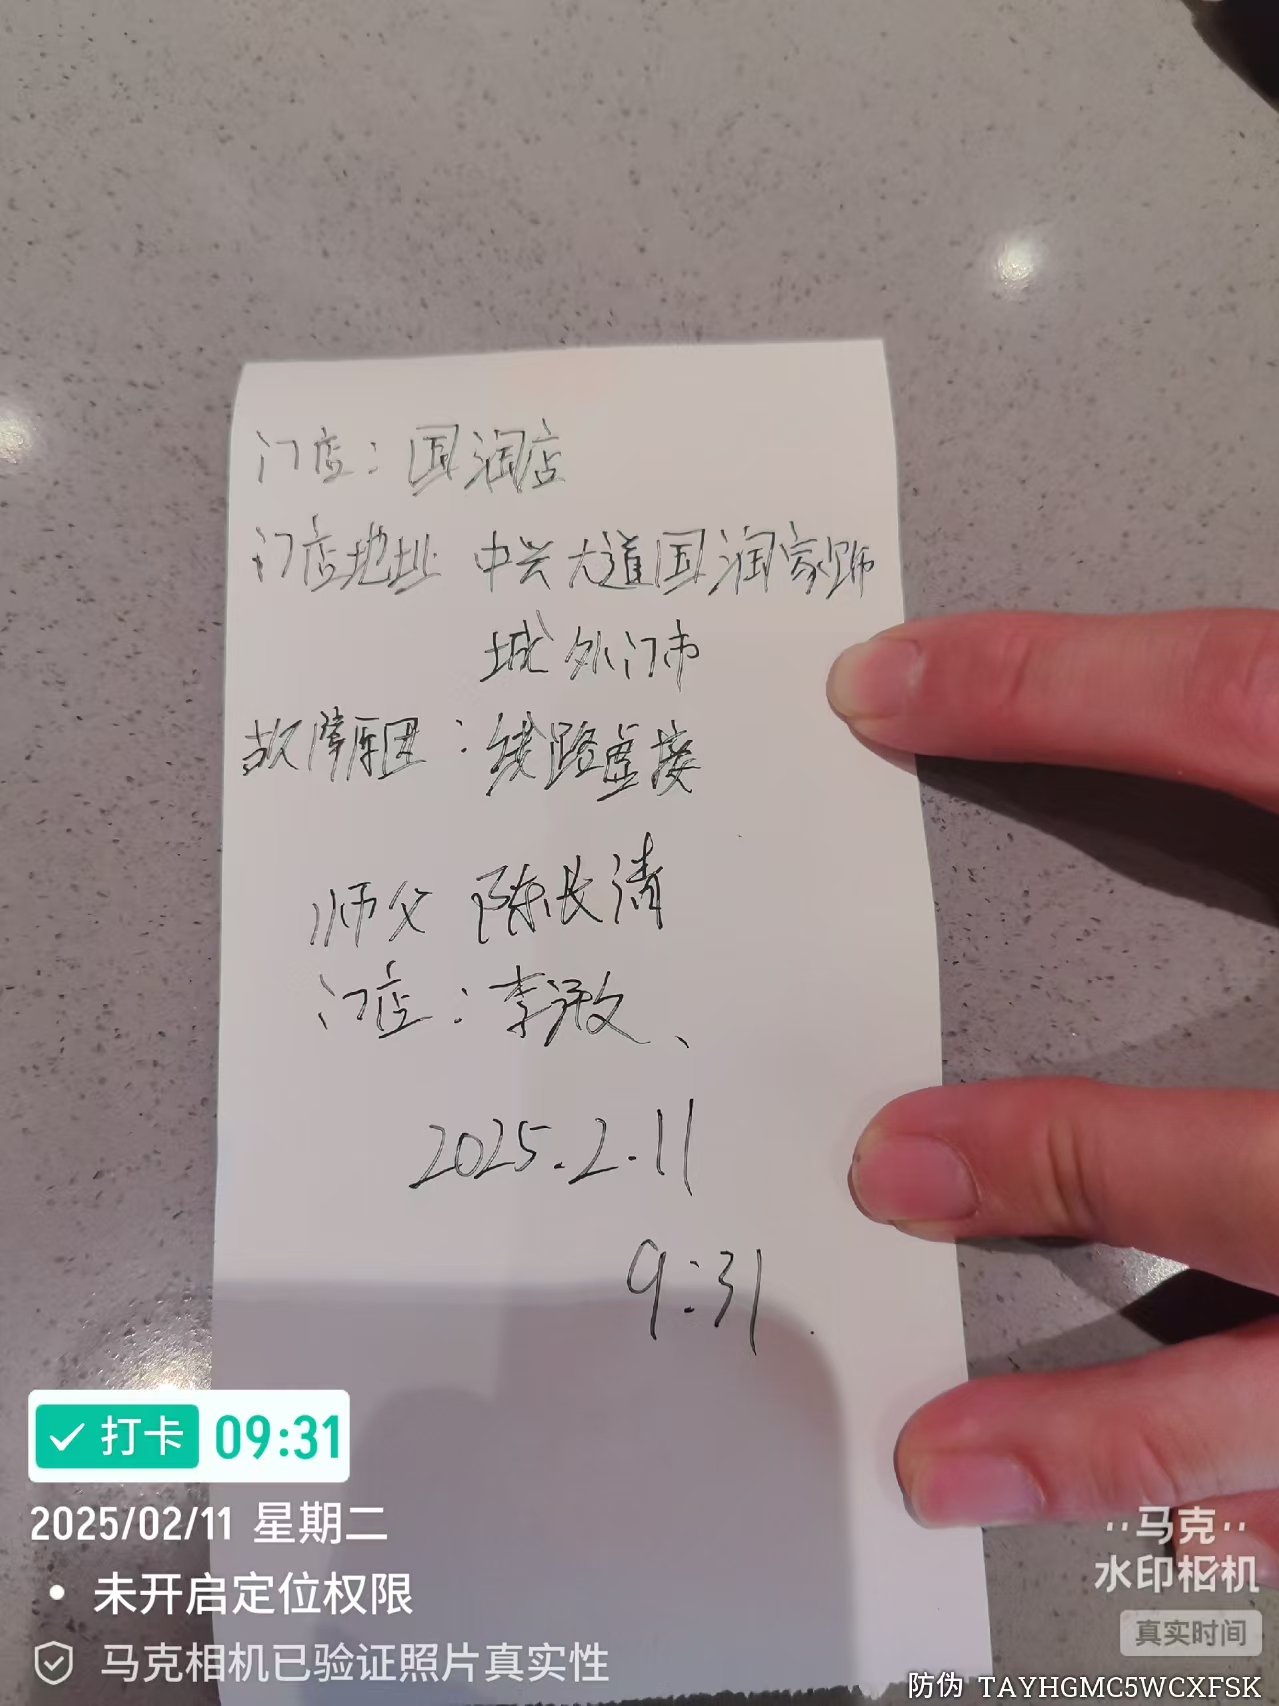 门店：国润店
门店地址 中兴大道国润家师
城外门市
故障原因：线路虚接
师父 陈长清
门店：李
2025.2.11
9:31
打卡 09:31
2025/02/11 星期二
未开启定位权限
马克相机已验证照片真实性
马克
水印相机
真实时间
防伪 TAYHGMC5WCXFSK